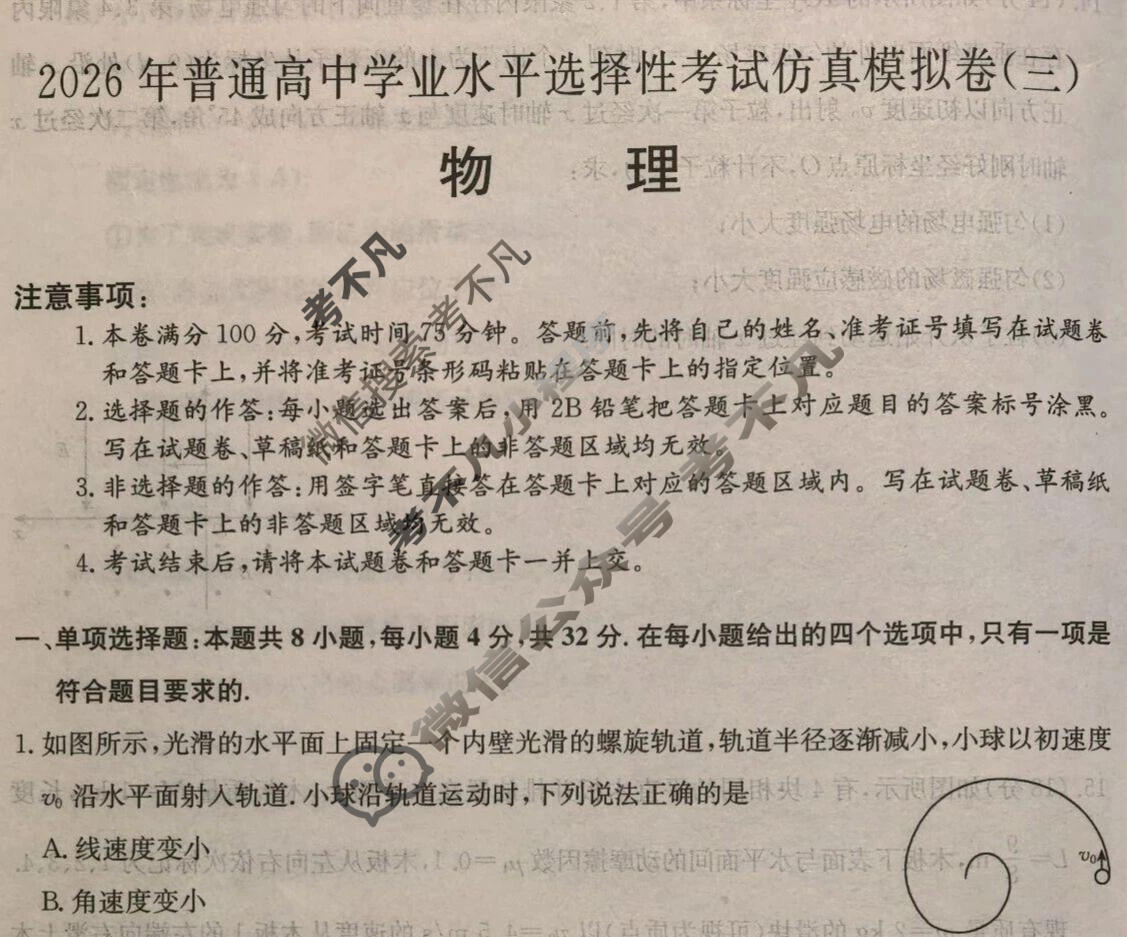 2026 年普通高中学业水平选择性考试仿真模拟卷(三)
物 理
注意事项:
1. 本卷满分 100 分,考试时间 75 分钟。答题前,先将自己的姓名、准考证号填写在试题卷
和答题卡上,并将准考证号条形码粘贴在答题卡上的指定位置。
2. 选择题的作答:每小题选出答案后,用 2B 铅笔把答题卡上对应题目的答案标号涂黑。
写在试题卷、草稿纸和答题卡上的非答题区域均无效。
3. 非选择题的作答:用签字笔直接答在答题卡上对应的答题区域内。写在试题卷、草稿纸
和答题卡上的非答题区域均无效。
4. 考试结束后,请将本试题卷和答题卡一并上交。
一、单项选择题:本题共 8 小题,每小题 4 分,共 32 分. 在每小题给出的四个选项中,只有一项是
符合题目要求的.
1. 如图所示,光滑的水平面上固定一个内壁光滑的螺旋轨道,轨道半径逐渐减小,小球以初速度
v₀ 沿水平面射入轨道. 小球沿轨道运动时,下列说法正确的是
A. 线速度变小
B. 角速度变小
v₀
考不凡
微信搜索考不凡
考不凡小程序
微信公众号 考不凡